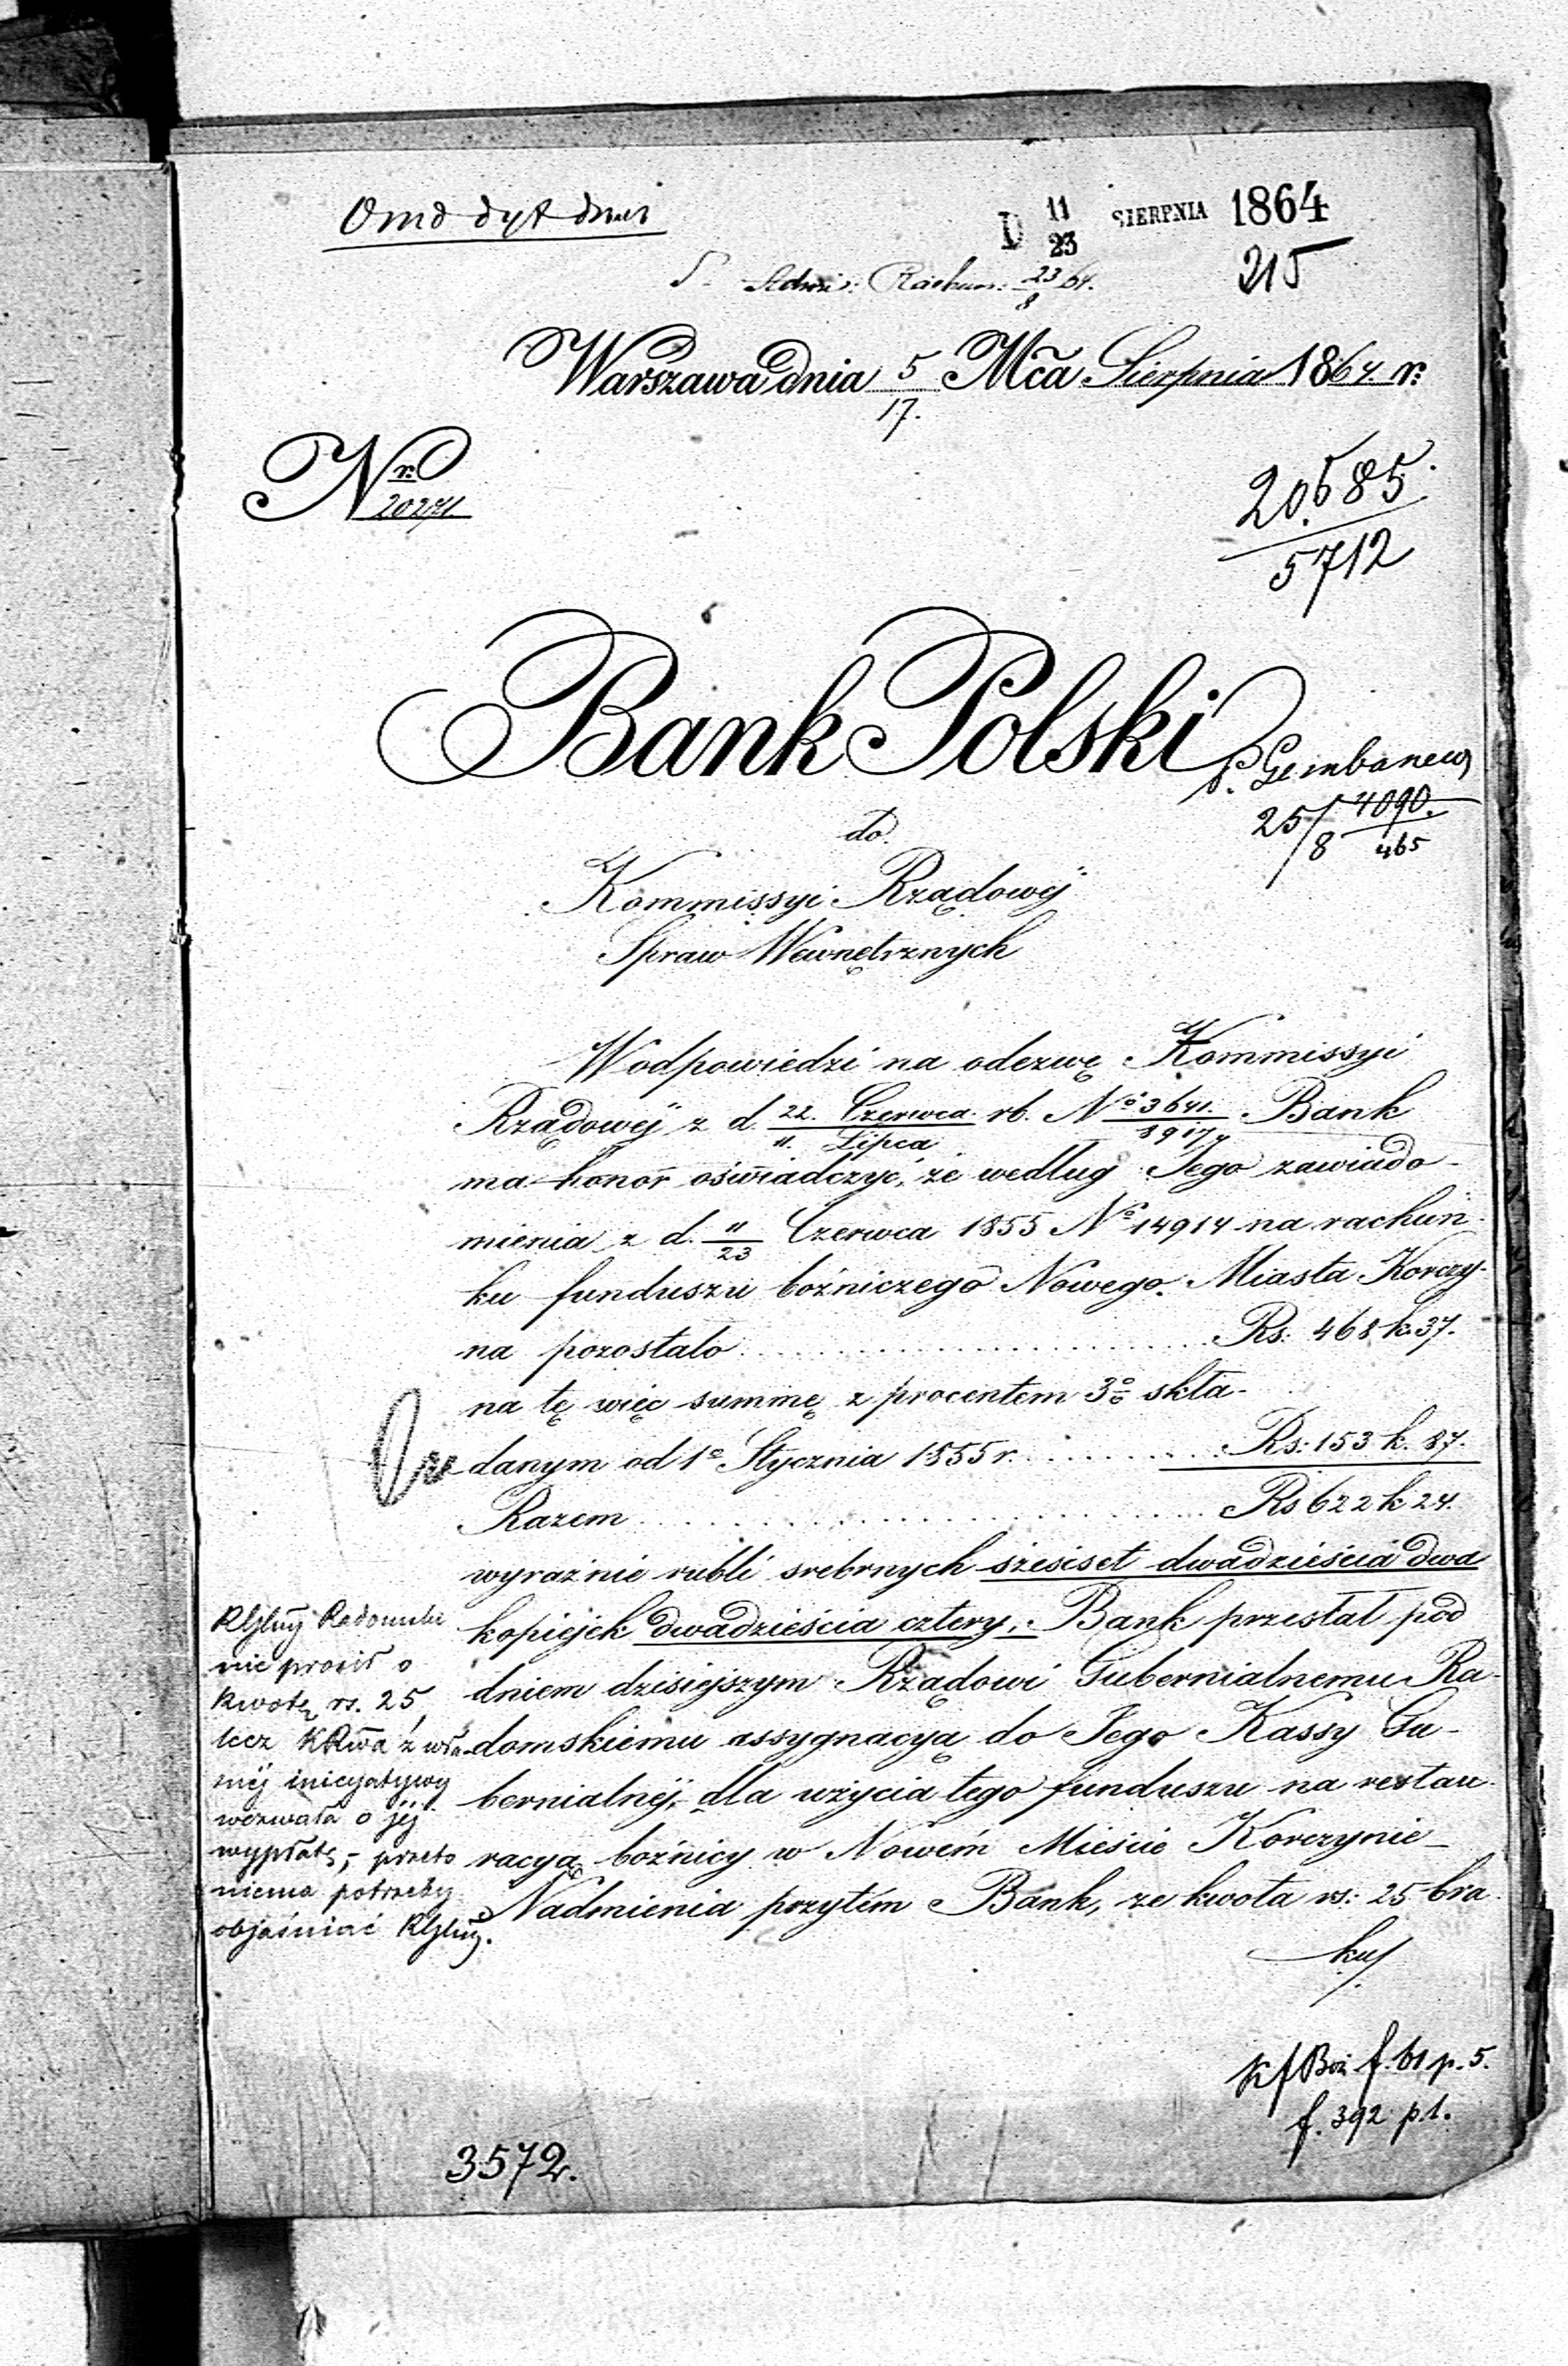 D 11/23 SIERPNIA 1864
215
23/8 64.
Warszawa dnia 5/17. Mca Sierpnia 1864. r:
Nr. 20271
20685.
5712
Bank Polski
25/8 4090.
465
do
Kommissyi Rządowéj
Spraw Wewnętrznych
W odpowiedzi na odezwę Kommissyi
Rządowéj z d. 22. Czerwca / 11. Lipca rb. No 3641. Bank
ma honor oświadczyć, że według Jego zawiado-
mienia z d. 11/23 Czerwca 1855 No 14914 na rachun-
ku funduszu bożniczego Nowego Miasta Korczy-
na pozostało Rs: 468 k. 37.
na tę więc summę z procentem 3% skła-
danym od 1o Stycznia 1855 r. Rs: 153 k. 87.
Razem Rs 622 k 24.
wyraźnie rubli srebrnych sześset dwadzieścia dwa
kopiejek dwadzieścia cztery, Bank przesłał pod
dniem dzisiejszym Rządowi Gubernialnemu Ra-
domskiemu assygnacyą do Jego Kassy Gu-
bernialnéj, dla użycia tego funduszu na restau-
racyą bożnicy w Nowém Mieście Korczynie
Nadmienia przytém Bank, że kwota rs: 25 bra-
ku/
nie prosił o
kwotę rs. 25,
lecz z wła-
snéj inicyatywy
wezwała o jéj
wypłatę, przeto
niema potrzeby
objaśniać
f. 61 p. 5.
f. 392 p. 1.
3572.